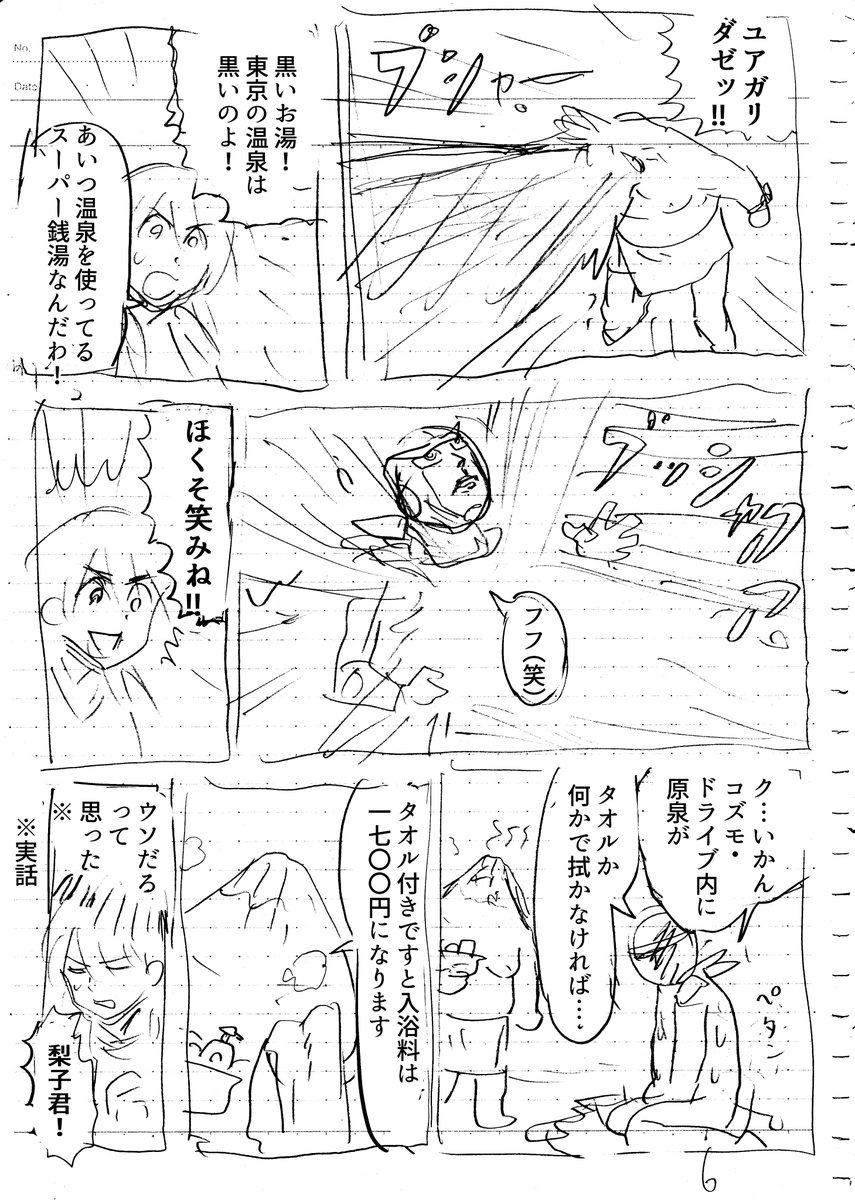 ユアガリ
ダゼッ!!
ブシャー
黒いお湯！
東京の温泉は
黒いのよ！
あいつ温泉を使ってる
スーパー銭湯なんだわ！
No.
Date
ブッシ
フフ（笑）
ほくそ笑みね!!
ク…いかん
コズモ・
ドライブ内に
原泉が
タオルか
何かで拭かなければ…
ペタン
タオル付きですと入浴料は
一七〇〇円になります
ウソだろ
って
思った
※
※実話
梨子君！
6